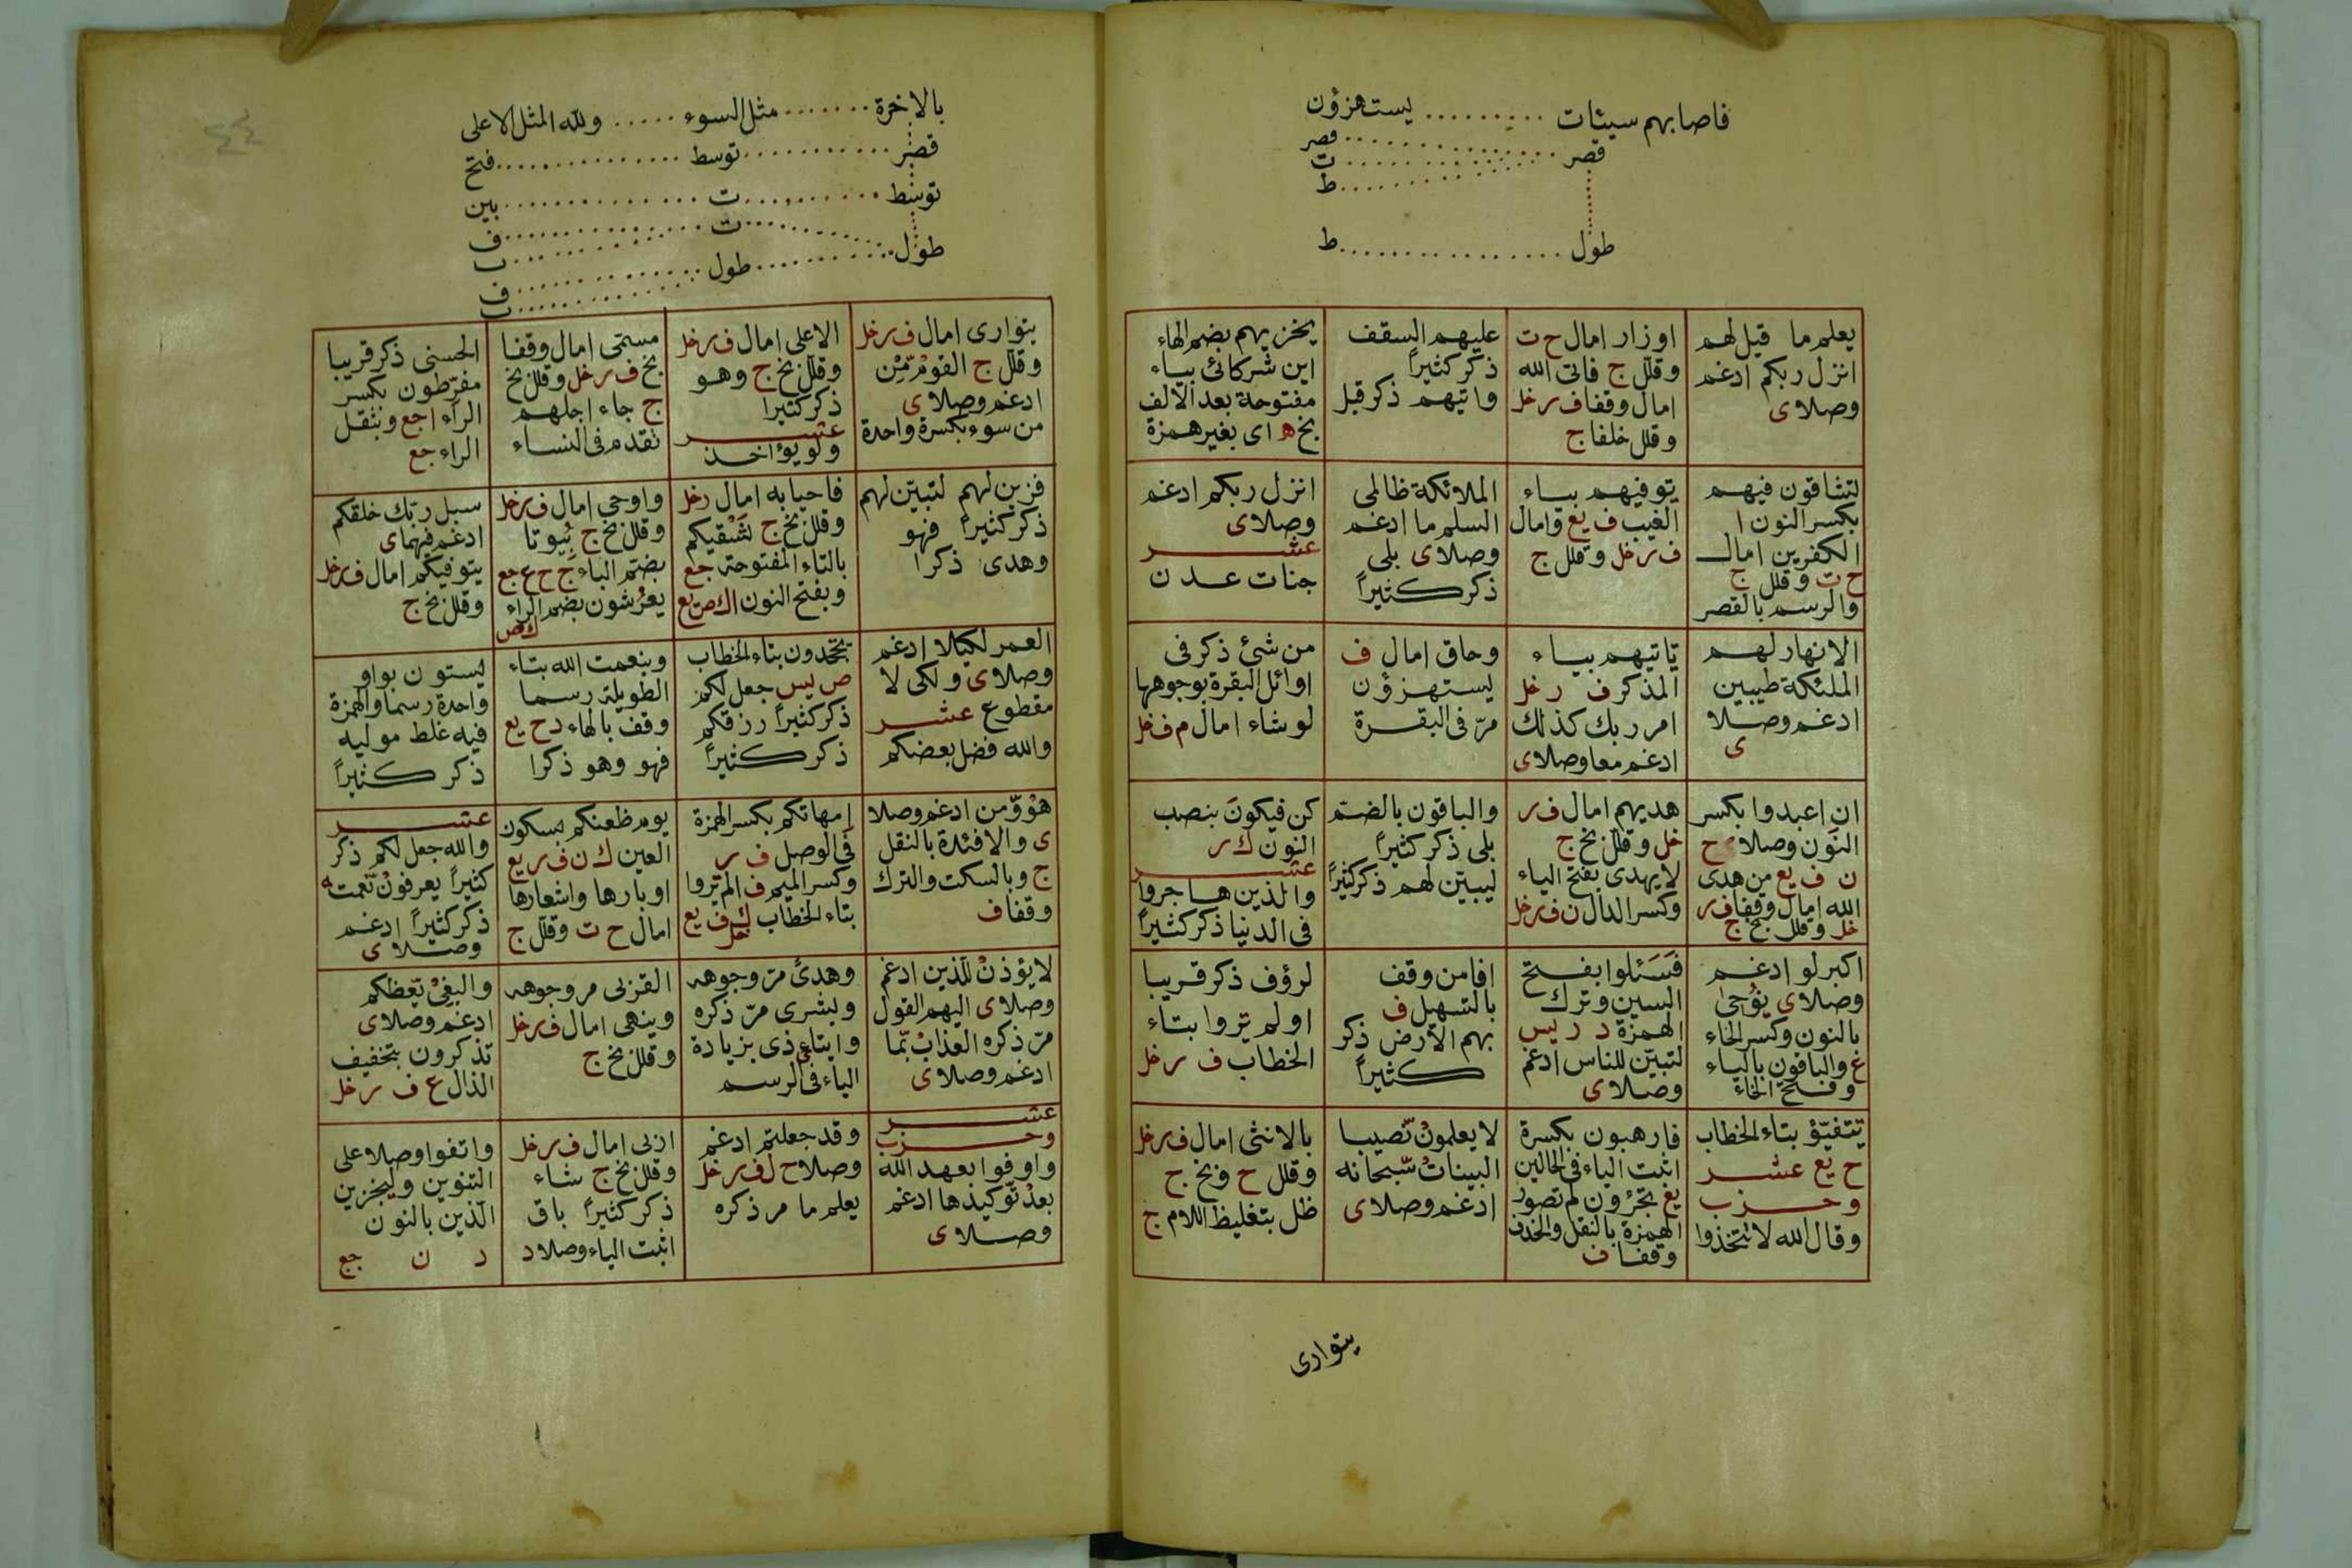 فاصابهم سيئات ......... ليستهزؤن
قصر ............... قصر
............... ت
............... ط
طول ................ ط
يعلم ما قيل لهم
انزل ربكم ادغم
وصلا ى
اوزار امال ح ت
وقلل ج فاتى الله
امال وقفا ف ر خل
وقلل خلفا ج
عليهم السقف
ذكر كثيراً
واتيهم ذكر قبل
يخزيهم بضم الهاء
اين شركائى بياء
مفتوحة بعد الالف
بخ ه اى بغير همزة
لتشاقون فيهم
بكسر النون ا
الكفرين امال
ح ت وقلل ج
والرسم بالقصر
يتوفيهم بياء
الغيب ف يع وامال
ف ر خل وقلل ج
الملائكة ظالمى
السلم ما ادغم
وصلا ى بلى
ذكر كثيراً
انزل ربكم ادغم
وصلا ى
عشر
جنات عدن
الانهار لهم
الملئكة طيبين
ادغم وصلا
ى
تاتيهم بياء
المذكر ف ر خل
امر ربك كذلك
ادغم معا وصلا ى
وحاق امال ف
ليستهزؤن
مرّ فى البقرة
من شئ ذكر فى
اوائل البقرة بوجوهها
لو شاء امال م ف خل
ان اعبدوا بكسر
النون وصلا ى ح
ن ف يع من هدى
الله امال وقفا ف ر
خل وقلل بخ ج
هديهم امال ف ر
خل وقلل بخ ج
لا يهدى بفتح الياء
وكسر الدال ن ف ر خل
والباقون بالضم
بلى ذكر كثيراً
ليبيّن لهم ذكر كثيراً
كن فيكونَ بنصب
النون ك ر
عشر
والذين هاجروا
فى الدنيا ذكر كثيراً
اكبر لو ادغم
وصلا ى نوحى
بالنون وكسر الحاء
غ والباقون بالياء
وفتح الحاء
فَسَئلوا بفتح
السين وترك
الهمزة د ر يس
لتبيّن للناس ادغم
وصلا ى
افامن وقف
بالتسهيل ف
بهم الارض ذكر
كثيراً
لرؤف ذكر قريبا
اولم تروا بتاء
الخطاب ف ر خل
تتفيّؤ بتاء الخطاب
ح يع عشر
وحزب
وقال الله لا تتخذوا
فارهبون بكسرة
اثبت الياء فى الحالين
يع تجئرون لم تصور
الهمزة بالنقل والحذف
وقفا ف
لا يعلمون نّصيبا
البينات سّبحانه
ادغم وصلا ى
بالانثى امال ف ر خل
وقلل ح وبخ ج
ظل بتغليظ اللام ج
يتوارى
بالاخرة ....... مثل السوء ..... ولله المثل الاعلى
قصر ........... توسط ............... فتح
توسط .......... ت ............... بين
ت ............... ف
............... ب
طول ........... طول ............... ف
............... ب
يتوارى امال ف ر خل
وقلل ج القوم مّن
ادغم وصلا ى
من سوء بكسرة واحدة
الاعلى امال ف ر خل
وقلل بخ ج وهو
ذكر كثيرا
عشر
ولو يؤاخذ
مسمى امال وقفا
بخ ف ر خل وقلل بخ
ج جاء اجلهم
تقدم فى النساء
الحسنى ذكر قريبا
مفرّطون بكسر
الراء ا جع وبثقل
الراء جع
فزين لهم لتبيّن لهم
ذكر كثيراً فهو
وهدى ذكرا
فاحيا به امال ر خل
وقلل بخ ج تسقيكم
بالتاء المفتوحة جع
وبفتح النون ا ك ص يع
واوحى امال ف ر خل
وقلل بخ ج بيوتا
بضم الباء ج ح ع جع
يعرُشون بضم الراء
ك ص
سبل ربّك خلقكم
ادغم فيهما ى
يتوفيكم امال ف ر خل
وقلل بخ ج
العمر لكيلا ادغم
وصلا ى ولكى لا
مقطوع عشر
والله فضل بعضكم
تجحدون بتاء الخطاب
ص يس جعل لكم
ذكر كثيراً رزقكم
ذكر كثيراً
وبنعمت الله بتاء
الطويلة رسما
وقف بالهاء د ح يع
فهو وهو ذكرا
ليستون بواو
واحدة رسما والهمزة
فيه غلط موليه
ذكر كثيراً
هو وّمن ادغم وصلا
ى والافئدة بالنقل
ج وبالسكت والترك
وقفا ف
امهاتكم بكسر الهمزة
فى الوصل ف ر
وكسر الميم ف الم تروا
بتاء الخطاب ك ف يع
خل
يوم ظعنكم بسكون
العين ك ن ف ر يع
اوبارها واشعارها
امال ح ت وقلل ج
عشر
والله جعل لكم ذكر
كثيراً يعرفون نّعمت
ذكر كثيراً ادغم
وصلا ى
لا يؤذن للّذين ادغم
وصلا ى اليهم القول
مرّ ذكره العذاب بّما
ادغم وصلا ى
وهدىً مرّ وجوهه
وبشرى مرّ ذكره
وايتاى ذى بزيادة
الياء فى الرسم
القربى مر وجوهه
وينهى امال ف ر خل
وقلل بخ ج
والبغى يّعظكم
ادغم وصلا ى
تذكرون بتخفيف
الذال ع ف ر خل
عشر
وحزب
واوفوا بعهد الله
بعد توكيدها ادغم
وصلا ى
وقد جعلتم ادغم
وصلا ح ل ف ر خل
يعلم ما مر ذكره
اربى امال ف ر خل
وقلل بخ ج شاء
ذكر كثيراً باق
اثبت الياء وصلا د
واتفوا وصلا على
التنوين وليجزين
الّذين بالنون
د ن جع